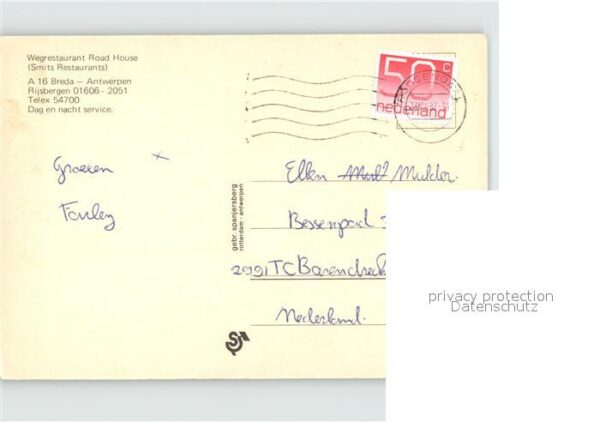 Wegrestaurant Road House
(Smits Restaurants)
A 16 Breda — Antwerpen
Rijsbergen 01606 - 2051
Telex 54700
Dag en nacht service.
50 c
nederland
Groeten
x
Ellen Mulder.
Bessenpad
2991TC Barendrech
Nederland.
gebr. spanjersberg
rotterdam - antwerpen
privacy protection
Datenschutz